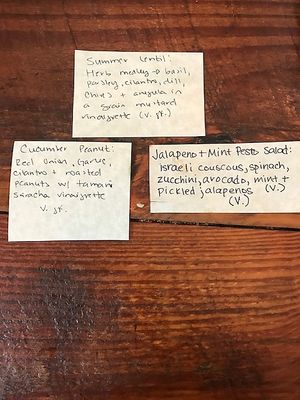 Summer Lentil:
Herb medley → basil,
parsley, cilantro, dill,
Chives + arugula in
a grain mustard
vinaigrette (v. gf.)
Cucumber Peanut:
Red Onion, Garlic,
cilantro + roasted
peanuts w/ tamari
Sriracha vinaigrette
v. gf.
Jalapeno + Mint Pesto Salad:
Israeli couscous, spinach,
zucchini, avocado, mint +
pickled jalapenos (v.)
(v.)